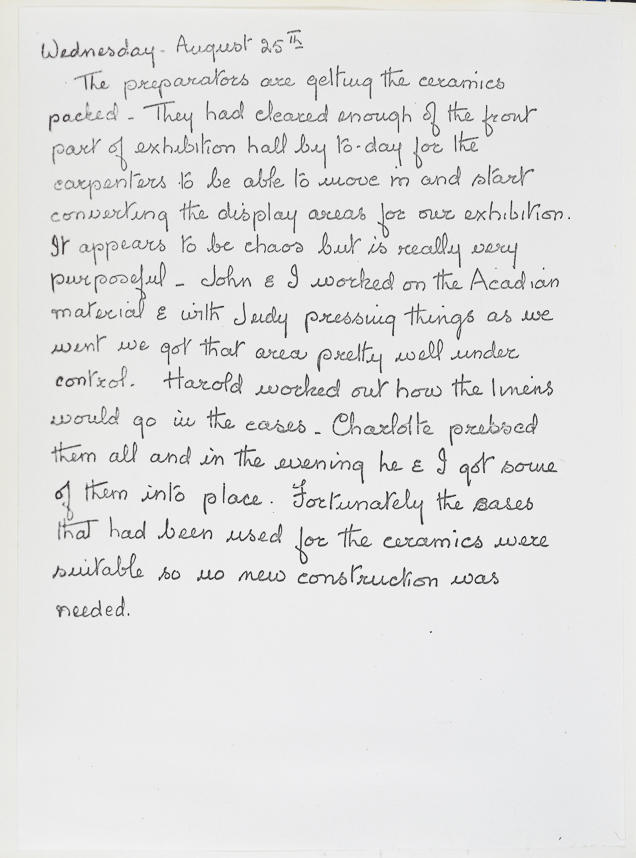 Wednesday - August 25th
The preparators are getting the ceramics
packed - They had cleared enough of the front
part of exhibition hall by to-day for the
carpenters to be able to move in and start
converting the display areas for our exhibition.
It appears to be chaos but is really very
purposeful - John & I worked on the Acadian
material & with Judy pressing things as we
went we got that area pretty well under
control. Harold worked out how the linens
would go in the cases - Charlotte pressed
them all and in the evening he & I got some
of them into place. Fortunately the cases
that had been used for the ceramics were
suitable so no new construction was
needed.